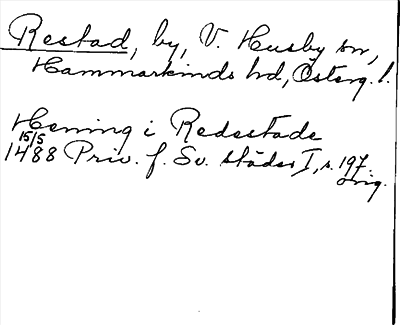 Restad, by, V. Husby sn,
Hammarkinds hd, Österg. l.
Hening i Redestade
15/5
1488 Priv. f. Sv. städer I, s. 197.
orig.